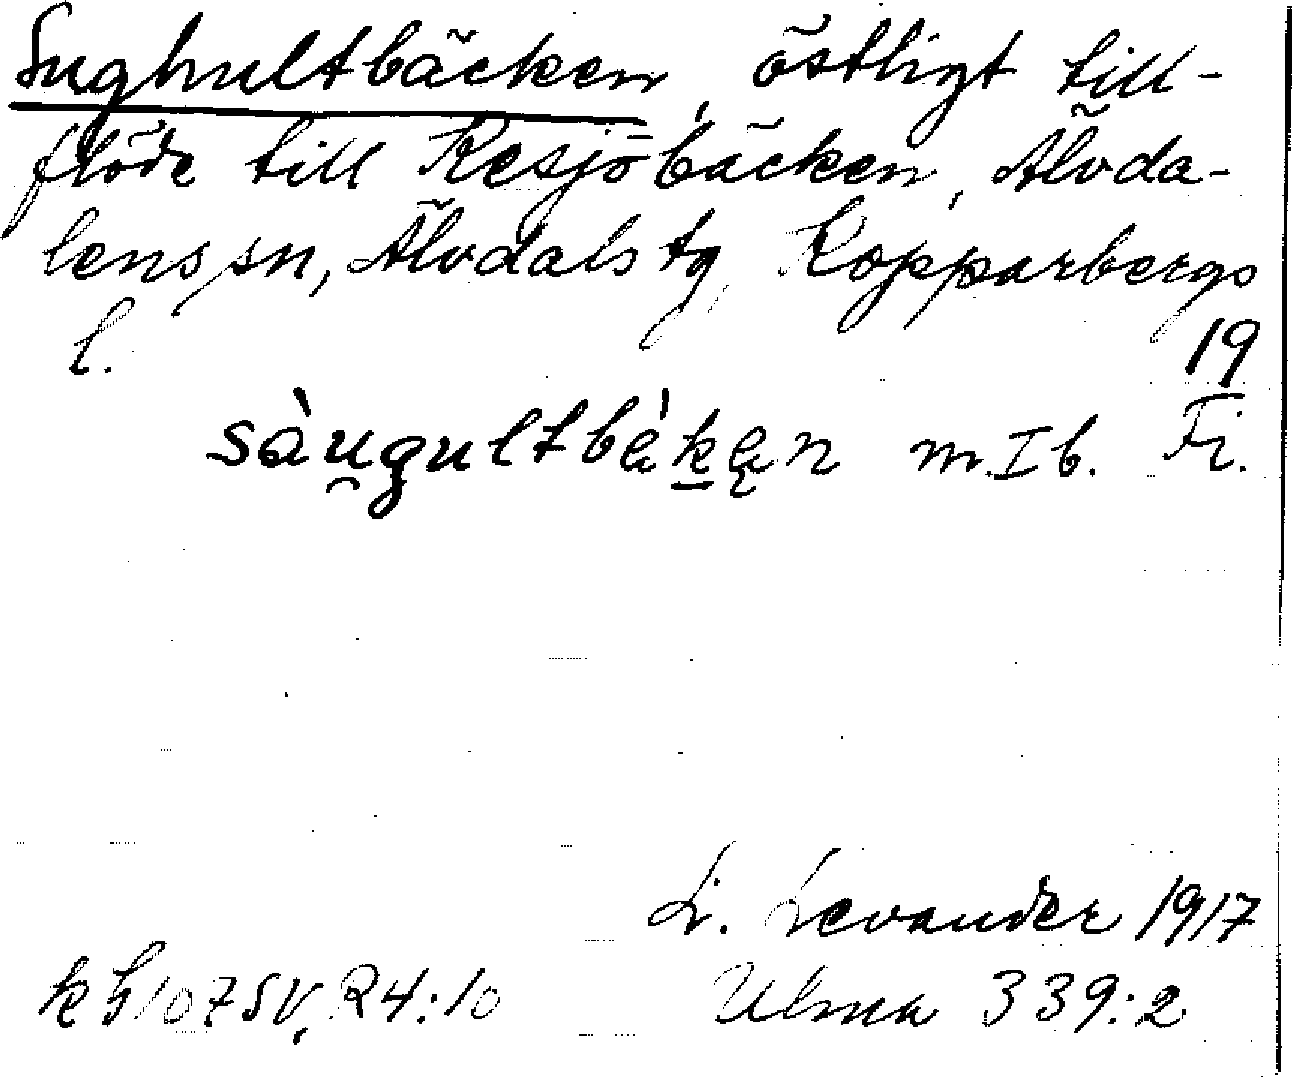 Sughultbäcken, östligt till-
flöde till Kesjöbäcken, Älvda-
lens sn, Älvdals tg, Kopparbergs
l. 19
sàu̯gultbä̀kęn m. I b. Fi.
L. Levander 1917
k b 107 SV, R4:10 Ulma 339:2